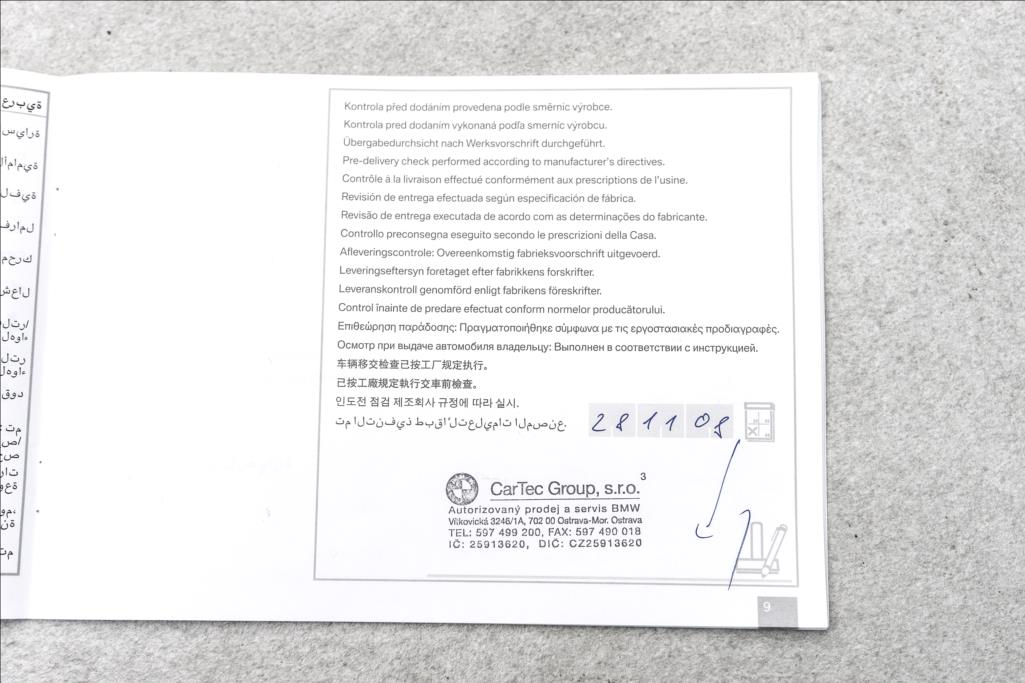 عربية
سيارة
Kontrola před dodáním provedena podle směrnic výrobce.
Kontrola pred dodaním vykonaná podľa smerníc výrobcu.
Übergabedurchsicht nach Werksvorschrift durchgeführt.
Pre-delivery check performed according to manufacturer's directives.
Contrôle à la livraison effectué conformément aux prescriptions de l'usine.
Revisión de entrega efectuada según especificación de fábrica.
Revisão de entrega executada de acordo com as determinações do fabricante.
Controllo preconsegna eseguito secondo le prescrizioni della Casa.
Afleveringscontrole: Overeenkomstig fabrieksvoorschrift uitgevoerd.
Leveringseftersyn foretaget efter fabrikkens forskrifter.
Leveranskontroll genomförd enligt fabrikens föreskrifter.
Control înainte de predare efectuat conform normelor producătorului.
Επιθεώρηση παράδοσης: Πραγματοποιήθηκε σύμφωνα με τις εργοστασιακές προδιαγραφές.
Осмотр при выдаче автомобиля владельцу: Выполнен в соответствии с инструкцией.
车辆移交检查已按工厂规定执行。
已按工廠規定執行交車前檢查。
인도전 점검 제조회사 규정에 따라 실시.
تم التنفيذ طبقا لتعليمات المصنع.
28 11 08
CarTec Group, s.r.o. 3
Autorizovaný prodej a servis BMW
Vítkovická 3246/1A, 702 00 Ostrava-Mor. Ostrava
TEL: 597 499 200, FAX: 597 490 018
IČ: 25913620, DIČ: CZ25913620
9